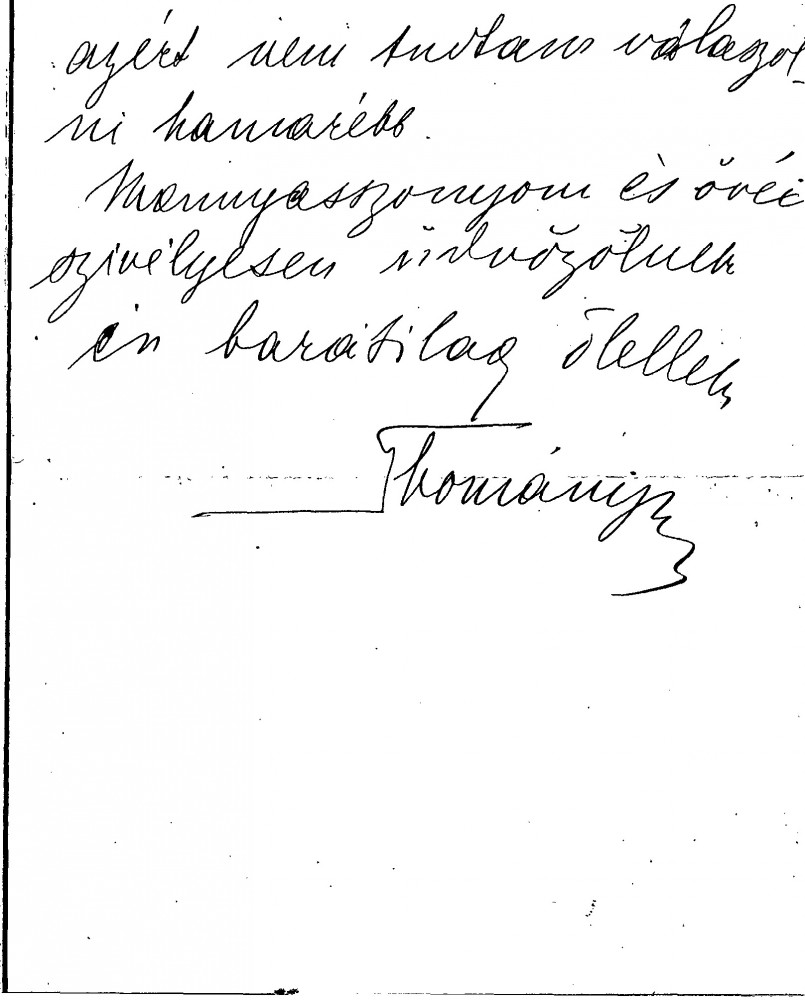 azért nem tudtam válaszol-
ni hamarébb.
Mennyasszonyom és övéi
szivélyesen üdvözölnek
én barátilag ölellek
Thományi